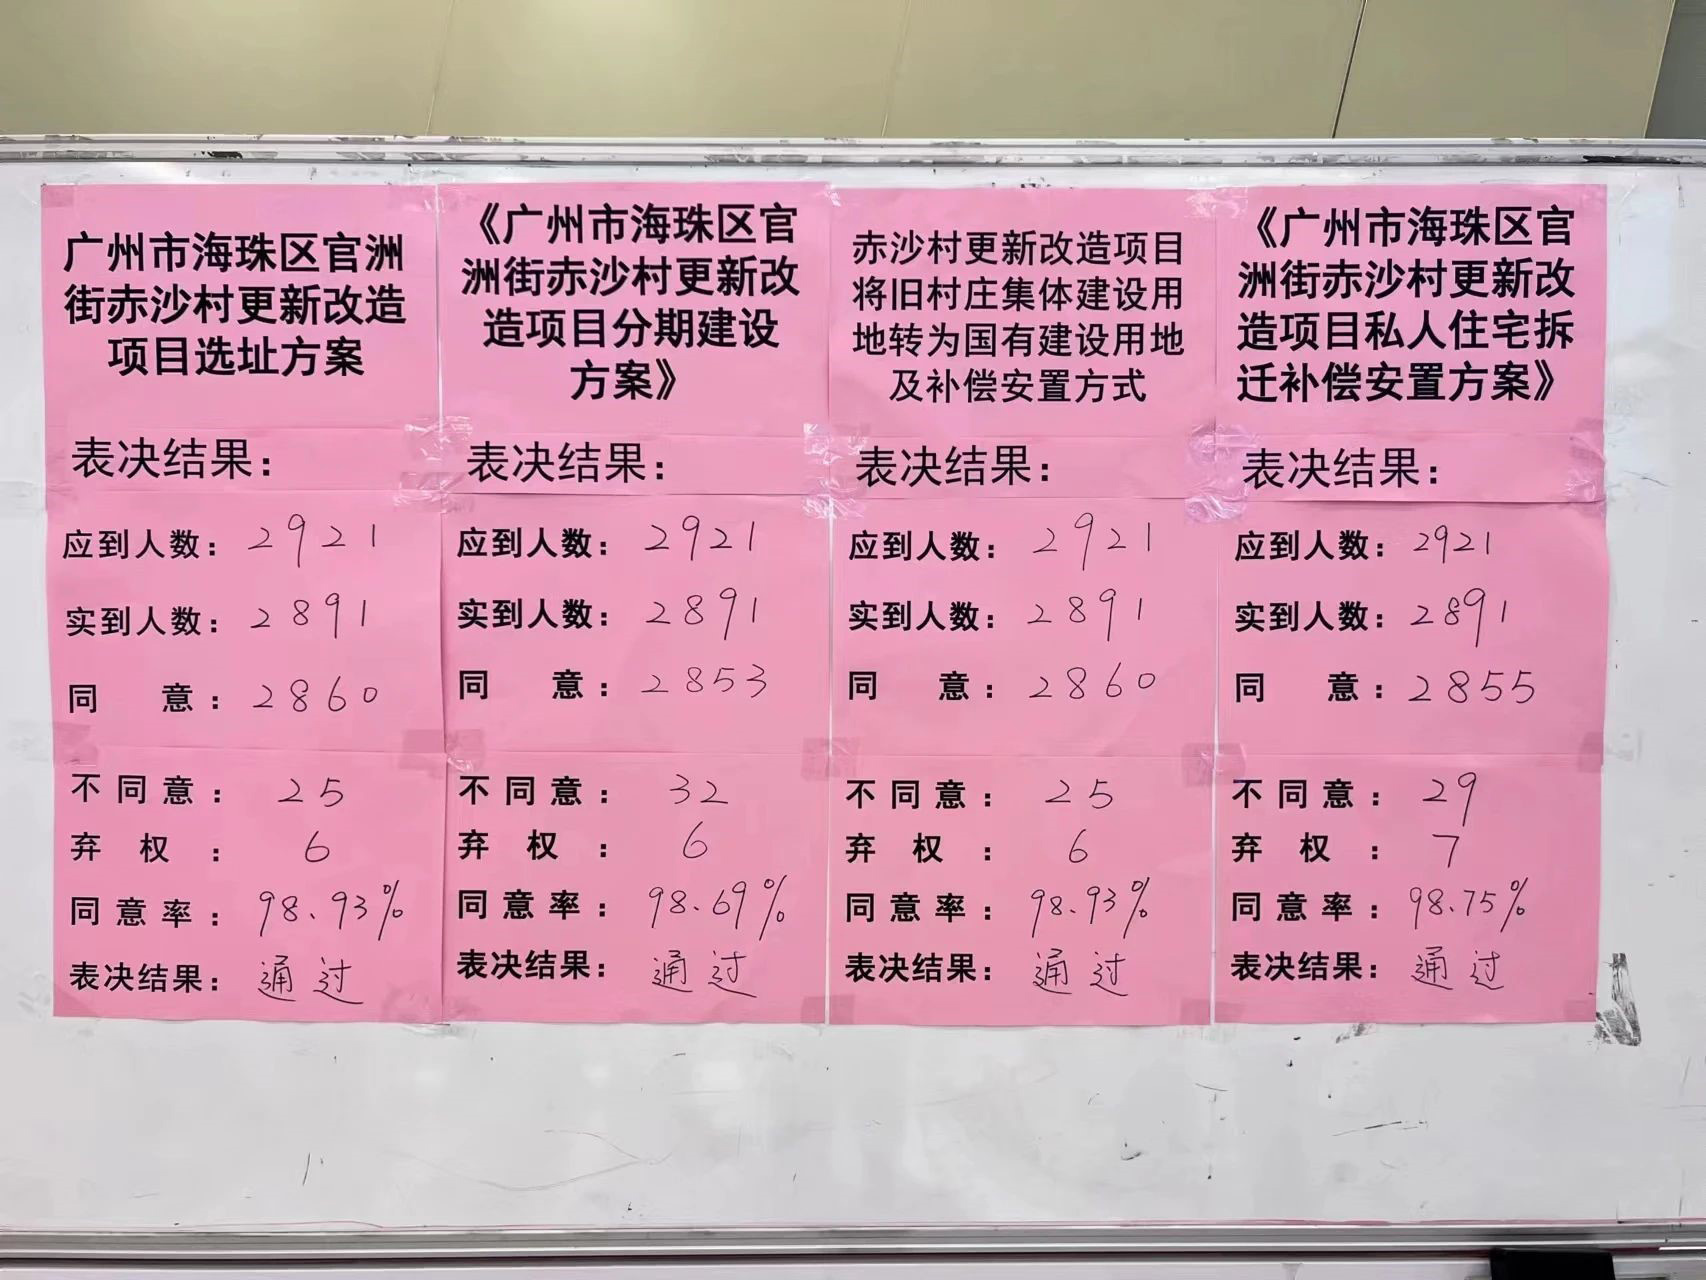 广州市海珠区官洲
街赤沙村更新改造
项目选址方案
表决结果：
应到人数：2921
实到人数：2891
同意：2860
不同意：25
弃权：6
同意率：98.93%
表决结果：通过
《广州市海珠区官
洲街赤沙村更新改
造项目分期建设
方案》
表决结果：
应到人数：2921
实到人数：2891
同意：2853
不同意：32
弃权：6
同意率：98.69%
表决结果：通过
赤沙村更新改造项目
将旧村庄集体建设用
地转为国有建设用地
及补偿安置方式
表决结果：
应到人数：2921
实到人数：2891
同意：2860
不同意：25
弃权：6
同意率：98.93%
表决结果：通过
《广州市海珠区官
洲街赤沙村更新改
造项目私人住宅拆
迁补偿安置方案》
表决结果：
应到人数：2921
实到人数：2891
同意：2855
不同意：29
弃权：7
同意率：98.75%
表决结果：通过